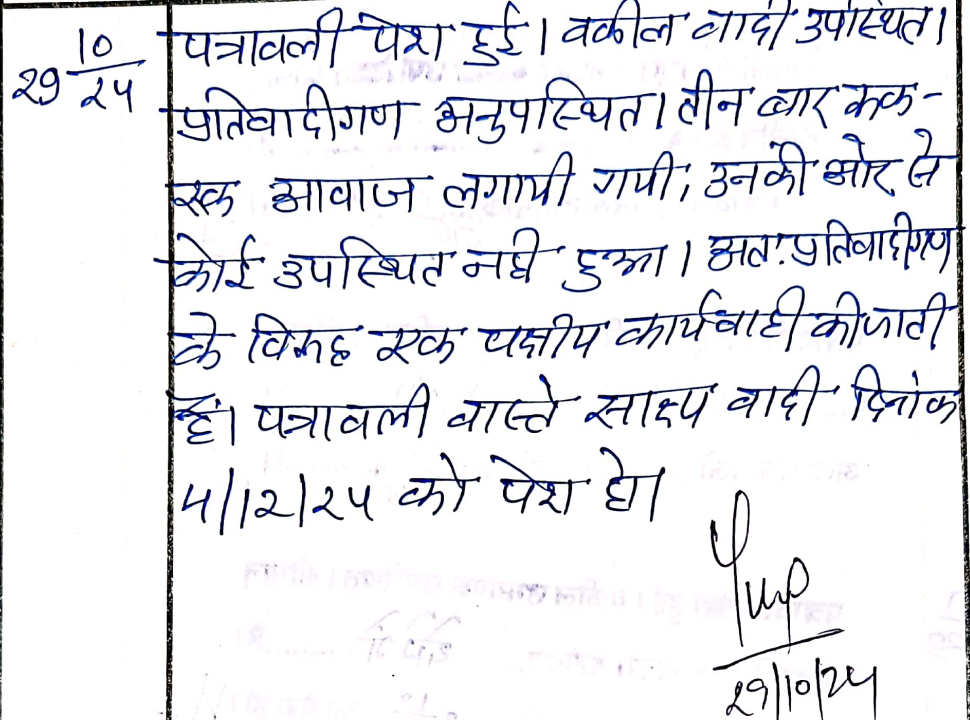 29 10/24
पत्रावली पेश हुई। वकील वादी उपस्थित।
प्रतिवादीगण अनुपस्थित। तीन बार रूक-
रूक आवाज लगायी गयी, उनकी ओर से
कोई उपस्थित नही हुआ। अतः प्रतिवादीगण
के विरूद्ध एक पक्षीय कार्यवाही की जाती
हैं। पत्रावली वास्ते साक्ष्य वादी दिनांक
4/12/24 को पेश हो।
29/10/24